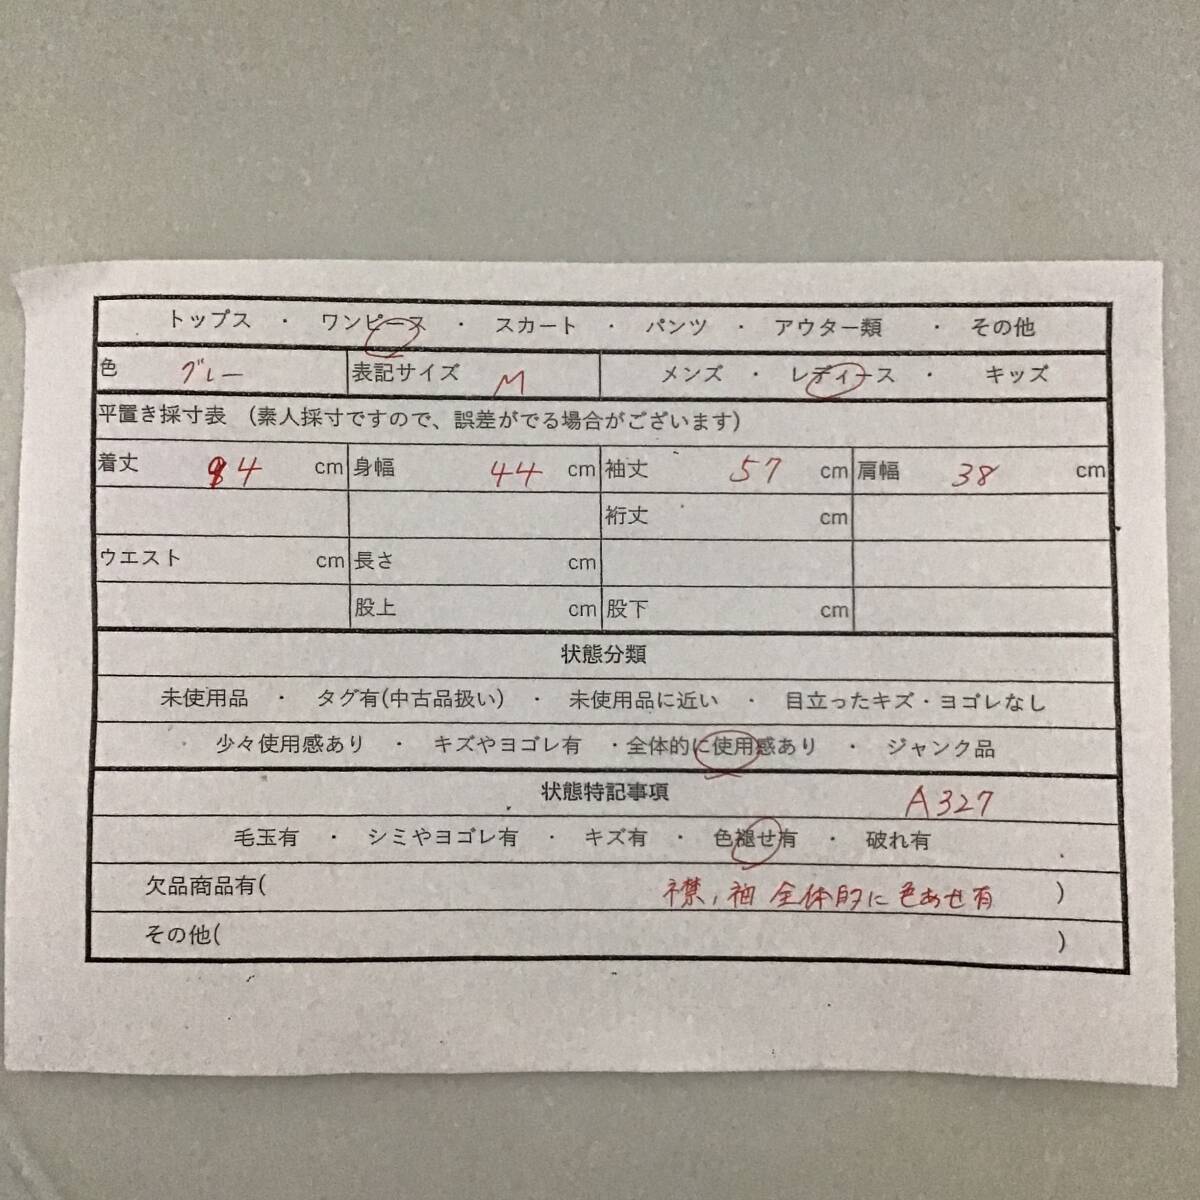 トップス ・ ワンピース ・ スカート ・ パンツ ・ アウター類 ・ その他
色 グレー 表記サイズ M メンズ ・ レディース ・ キッズ
平置き採寸表 (素人採寸ですので、誤差がでる場合がございます)
着丈 cm 身幅 44 cm 袖丈 57 cm 肩幅 38 cm
裄丈 cm
ウエスト cm 長さ cm
股上 cm 股下 cm
状態分類
未使用品 ・ タグ有(中古品扱い) ・ 未使用品に近い ・ 目立ったキズ・ヨゴレなし
少々使用感あり ・ キズやヨゴレ有 ・全体的に使用感あり ・ ジャンク品
状態特記事項 A327
毛玉有 ・ シミやヨゴレ有 ・ キズ有 ・ 色褪せ有 ・ 破れ有
欠品商品有( 襟,袖 全体的に色あせ有 )
その他( )